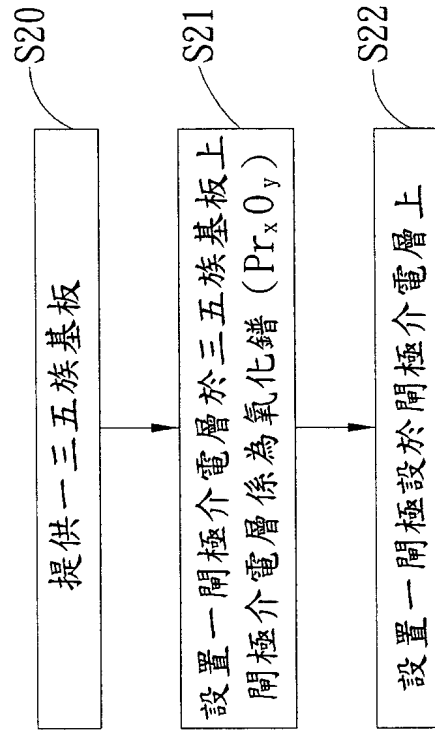 S20
提供一三五族基板
S21
設置一閘極介電層於三五族基板上
閘極介電層係為氧化鐠 (PrxOy)
S22
設置一閘極設於閘極介電層上